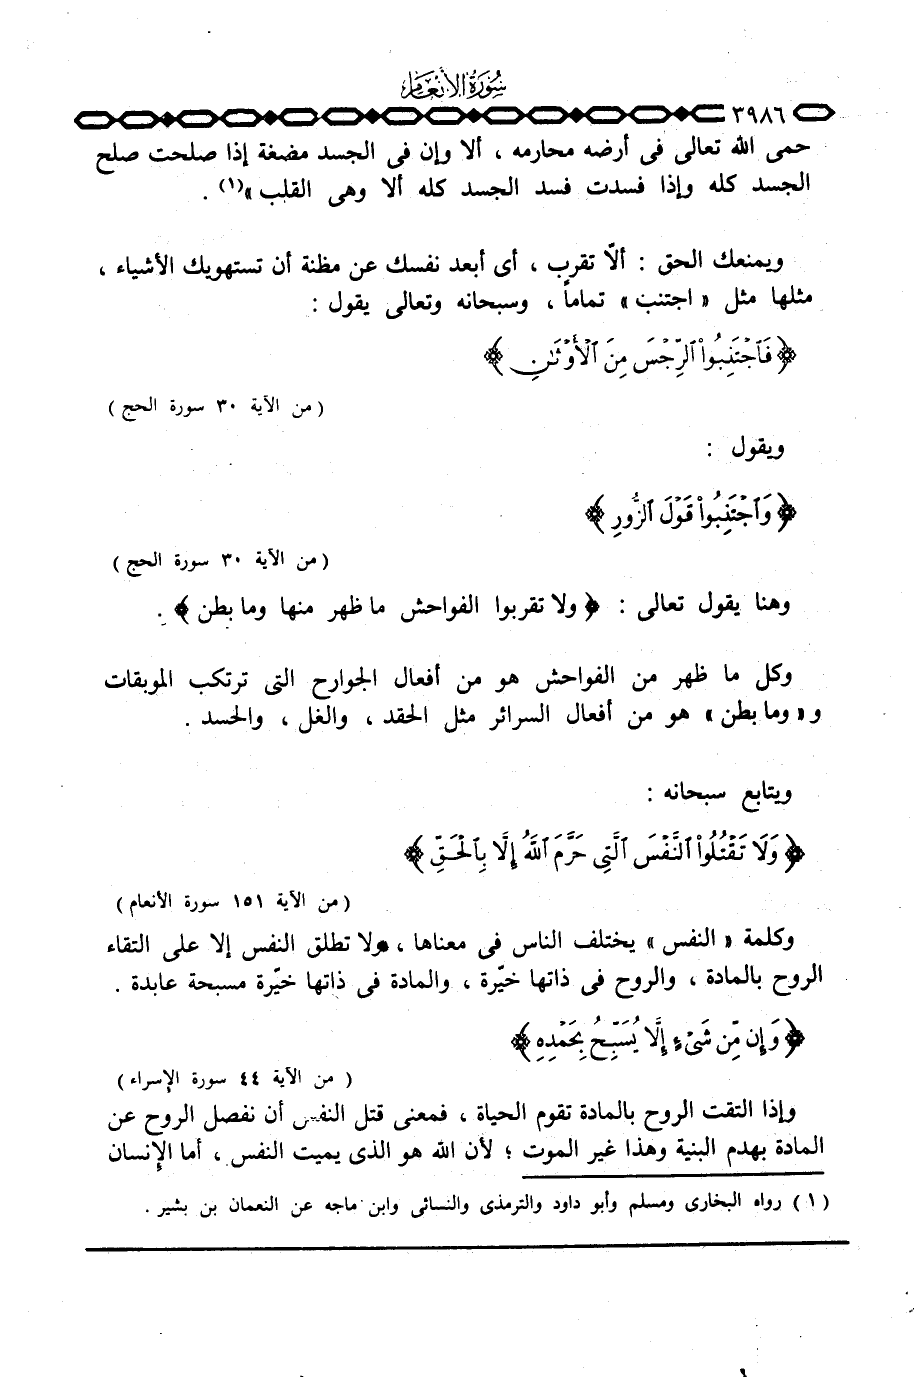 سُورَةُ الأَنْعَام
٣٩٨٦
حمى الله تعالى فى أرضه محارمه ، ألا وإن فى الجسد مضغة إذا صلحت صلح
الجسد كله وإذا فسدت فسد الجسد كله ألا وهى القلب »(١) .
ويمنعك الحق : ألاّ تقرب ، أى أبعد نفسك عن مظنة أن تستهويك الأشياء ،
مثلها مثل « اجتنب » تماماً ، وسبحانه وتعالى يقول :
﴿ فَٱجْتَنِبُوا۟ ٱلرِّجْسَ مِنَ ٱلْأَوْثَـٰنِ ﴾
( من الآية ٣٠ سورة الحج )
ويقول :
﴿ وَٱجْتَنِبُوا۟ قَوْلَ ٱلزُّورِ ﴾
( من الآية ٣٠ سورة الحج )
وهنا يقول تعالى : ﴿ ولا تقربوا الفواحش ما ظهر منها وما بطن ﴾ .
وكل ما ظهر من الفواحش هو من أفعال الجوارح التى ترتكب الموبقات
و « وما بطن » هو من أفعال السرائر مثل الحقد ، والغل ، والحسد .
ويتابع سبحانه :
﴿ وَلَا تَقْتُلُوا۟ ٱلنَّفْسَ ٱلَّتِى حَرَّمَ ٱللَّهُ إِلَّا بِٱلْحَقِّ ﴾
( من الآية ١٥١ سورة الأنعام )
وكلمة « النفس » يختلف الناس فى معناها ، ولا تطلق النفس إلا على التقاء
الروح بالمادة ، والروح فى ذاتها خيّرة ، والمادة فى ذاتها خيّرة مسبحة عابدة .
﴿ وَإِن مِّن شَىْءٍ إِلَّا يُسَبِّحُ بِحَمْدِهِ ﴾
( من الآية ٤٤ سورة الإسراء )
وإذا التقت الروح بالمادة تقوم الحياة ، فمعنى قتل النفس أن نفصل الروح عن
المادة بهدم البنية وهذا غير الموت ؛ لأن الله هو الذى يميت النفس ، أما الإنسان
( ١ ) رواه البخارى ومسلم وأبو داود والترمذى والنسائى وابن ماجه عن النعمان بن بشير .